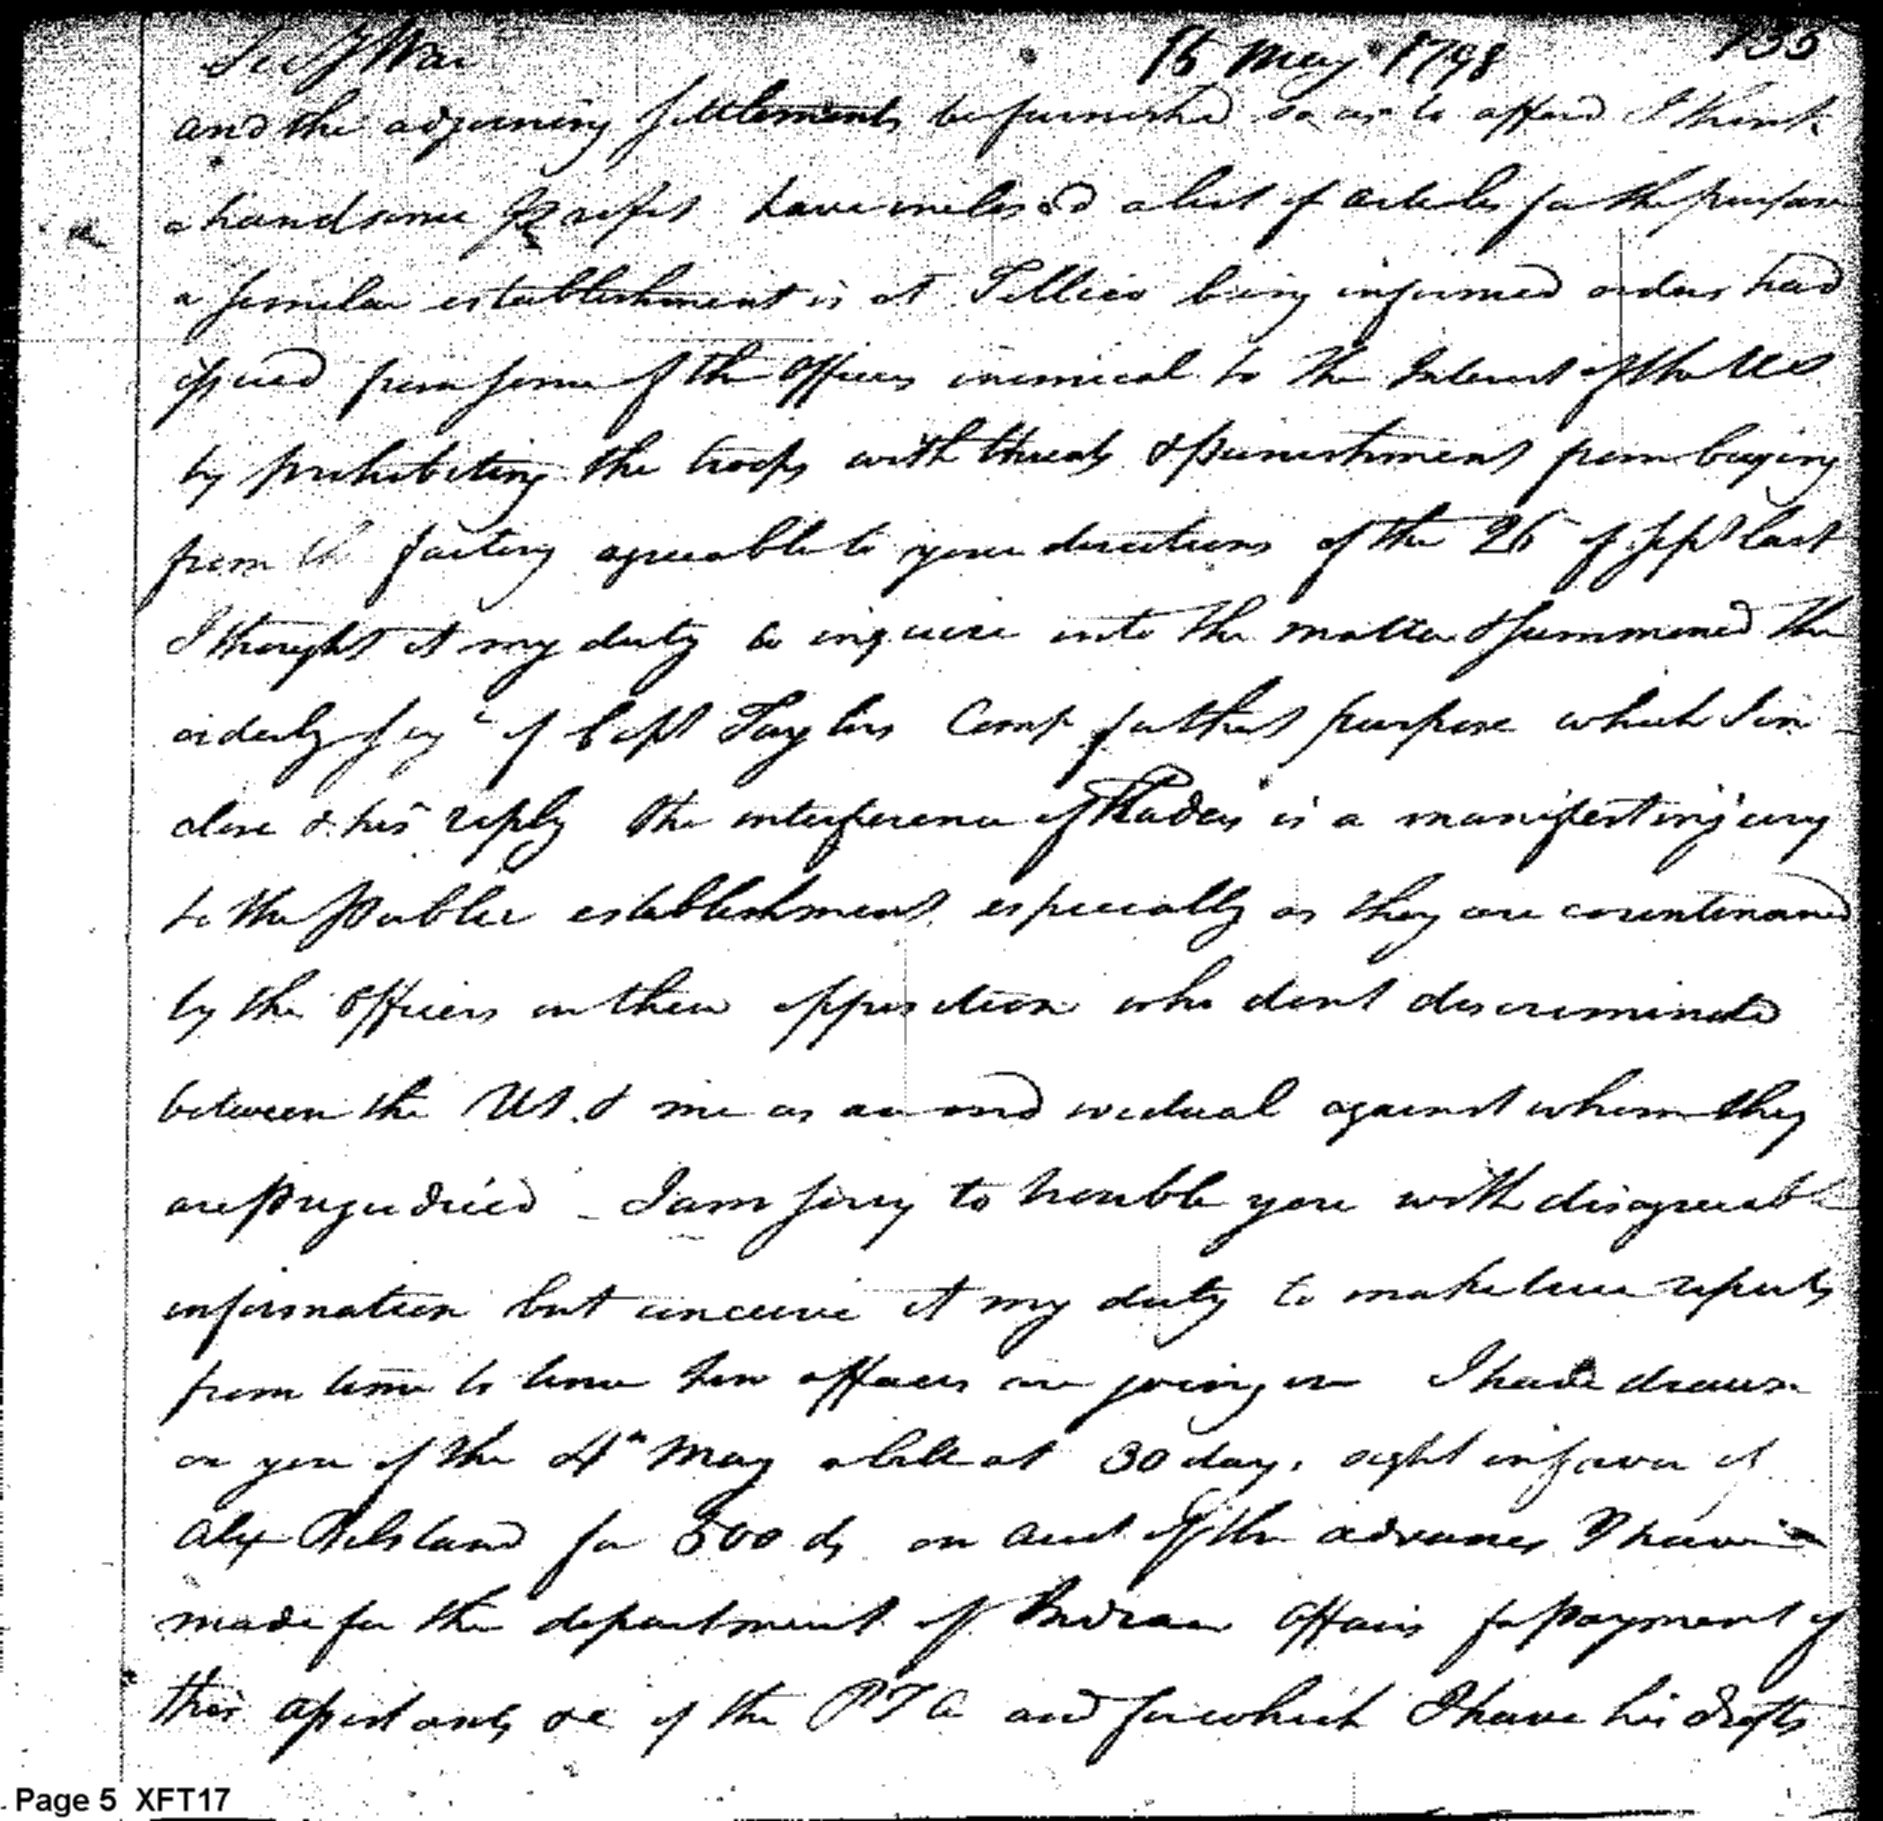 Secy War 15 May 1798 135
and the adjoining settlements be furnished so as to afford I think
a handsome profit have inclosed a list of articles for the purpose
a similar establishment is at Tellico being informed orders had
issued from some of the officers inimical to the Interest of the US
by prohibiting the troops with threats of punishment from buying
from the factory agreeable to your directions of the 26 of sept last
I thought it my duty to inquire into the matter & summoned the
orderly serjt of Capt Taylors Comp for that purpose which I in
close & his reply the interference of Traders is a manifest injury
to the Public establishment especially as they are countenanced
by the officers in their opposition who dont discriminate
between the US. & me as an individual against whom they
are prejudiced - I am sorry to trouble you with disagreeable
information but conceive it my duty to make true reports
from time to time how affairs are going on I have drawn
on you of the 4th May a bill at 30 days sight in favor of
Alex for 500 ds on acct of the advances I have
made for the department of Indian Affairs for payment of
their assistants &c of the PTA and for which I have his drafts
Page 5 XFT17